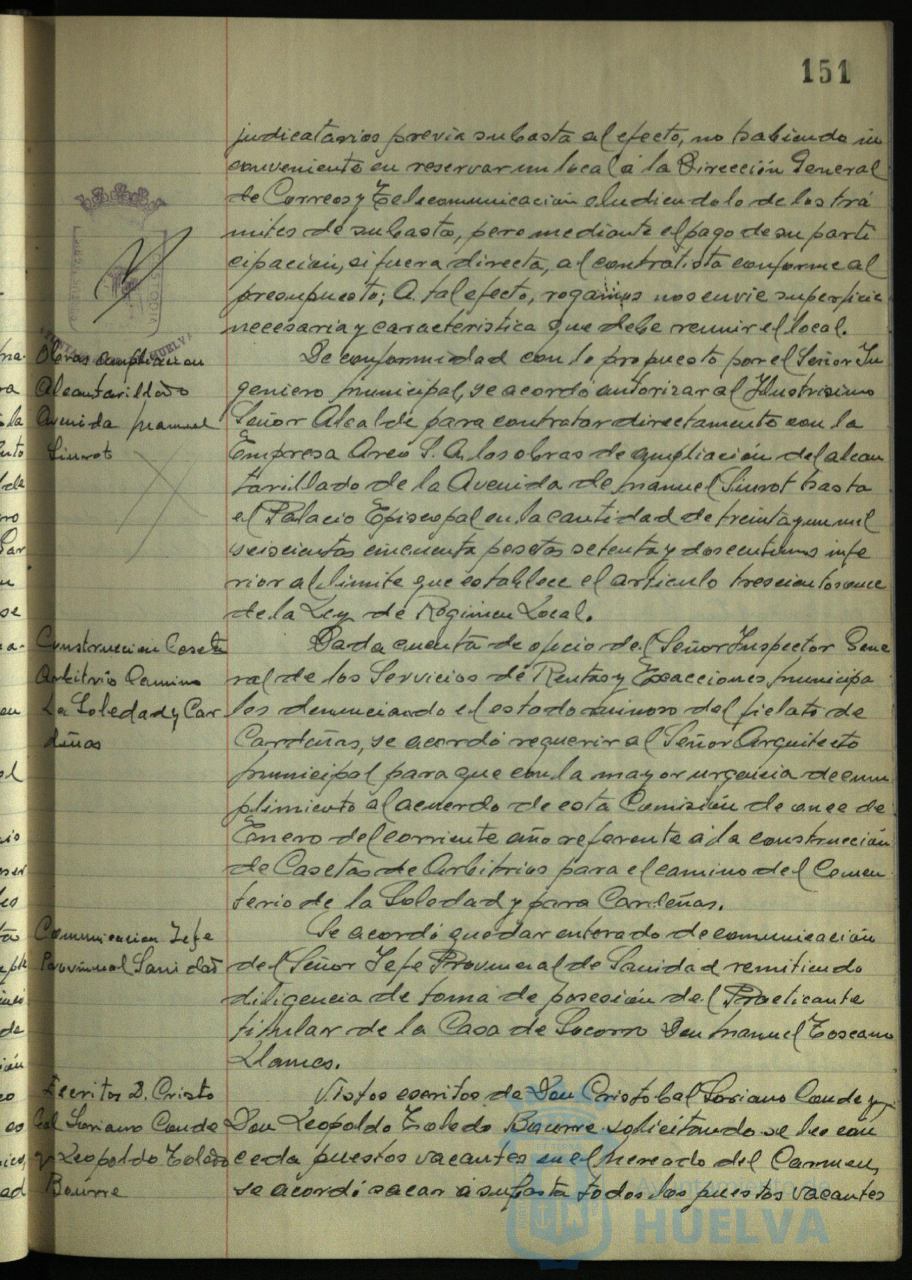 151
judicatarios previa subasta al efecto, no habiendo in
conveniente en reservar un local á la Dirección General
de Correos y Telecomunicación eludiendolo de los trá
mites de subasta, pero mediante el pago de su parti
cipación, si fuera directa, al contratista conforme al
presupuesto; A tal efecto, rogamos nos envie superficie
necesaria y caracteristica que debe reunir el local.
Obras ampliacion
Alcantarillado
Avenida Manuel
Siurot
De conformidad con lo propuesto por el Señor In
geniero Municipal, se acordó autorizar al Ilustrisimo
Señor Alcalde para contratar directamente con la
Empresa Arco S. A. las obras de ampliación del alcan
tarillado de la Avenida de Manuel Siurot hasta
el Palacio Episcopal en la cantidad de treinta y un mil
seiscientas cincuenta pesetas setenta y dos centimos infe
rior al limite que establece el articulo trescientos once
de la Ley de Régimen Local.
Construccion Caseta
Arbitrio Camino
La Soledad y Car
deñas
Dada cuenta de oficio del Señor Inspector Gene
ral de los Servicios de Rentas y Exacciones Municipa
les denunciando el estado ruinoso del fielato de
Cardeñas, se acordó requerir al Señor Arquitecto
Municipal para que con la mayor urgencia de cum
plimiento al acuerdo de esta Comisión de once de
Enero del corriente año referente á la construcción
de Casetas de Arbitrios para el camino del Cemen
terio de la Soledad y para Cardeñas.
Comunicacion Jefe
Provincial Sanidad
Se acordó quedar enterado de comunicación
del Señor Jefe Provincial de Sanidad remitiendo
diligencia de toma de posesión del Practicante
titular de la Casa de Socorro Don Manuel Toscano
Llanes.
Escritos D. Cristo
bal Soriano Conde
y Leopoldo Toledo
Bourre
Vistos escritos de Don Cristobal Soriano Conde y
Don Leopoldo Toledo Bourre solicitando se les con
ceda puestos vacantes en el Mercado del Carmen,
se acordó sacar á subasta todos los puestos vacantes
Ayuntamiento de
HUELVA